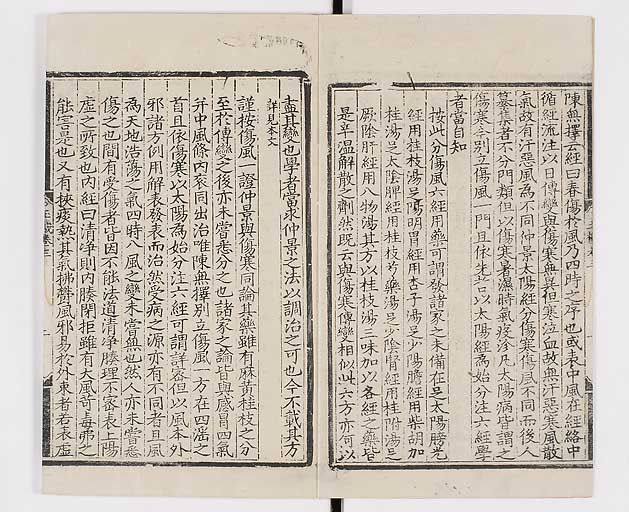 陳無擇云經曰春傷於風乃四時之序也或表中風在經絡中
循經流注以日傳變與傷寒無異但寒泣血故無汗惡寒風散
氣故有汗惡風為不同仲景太陽經分傷寒傷風不同而後人
纂集者不分門類但以傷寒著濕時氣疫沴凡太陽病皆謂之
傷寒今別立傷風一門且依先以太陽經為始分注六經學
者當自知
按此分傷風六經用藥可謂發諸家之未備在足太陽膀光
經用桂枝湯足陽明胃經用杏子湯足少陽膽經用柴胡加
桂湯足太陰脾經用桂枝芍藥湯足少陰腎經用桂附湯足
厥陰肝經用八物湯其方以桂枝湯三味加以各經之藥皆
是辛溫解散之劑然既云與傷寒傳變相似此六方亦何以
盡其變也學者當求仲景之法以調治之可也今不載其方
詳見本文
謹按傷風一證仲景與傷寒同論其藥雖有麻黃桂枝之分
至於傳變之後亦未嘗悉分之也諸家之論皆與感冒四氣
并中風條內衮同出治唯陳無擇別立傷風一方在四淫之
首且依傷寒以太陽為始分注六經可謂詳審但以風本外
邪諸方例用解表發表而治然受病之源亦有不同者且風
為天地浩蕩之氣四時八風之變未嘗無也然人亦未嘗悉
傷之也間有受傷者皆因不能法道清淨腠理不審表上陽
虛之所致也內經曰清淨則內腠閉拒雖有大風苛毒弗之
能害是也又有挾痰熱其氣拂鬱風邪易於外束者若表虛